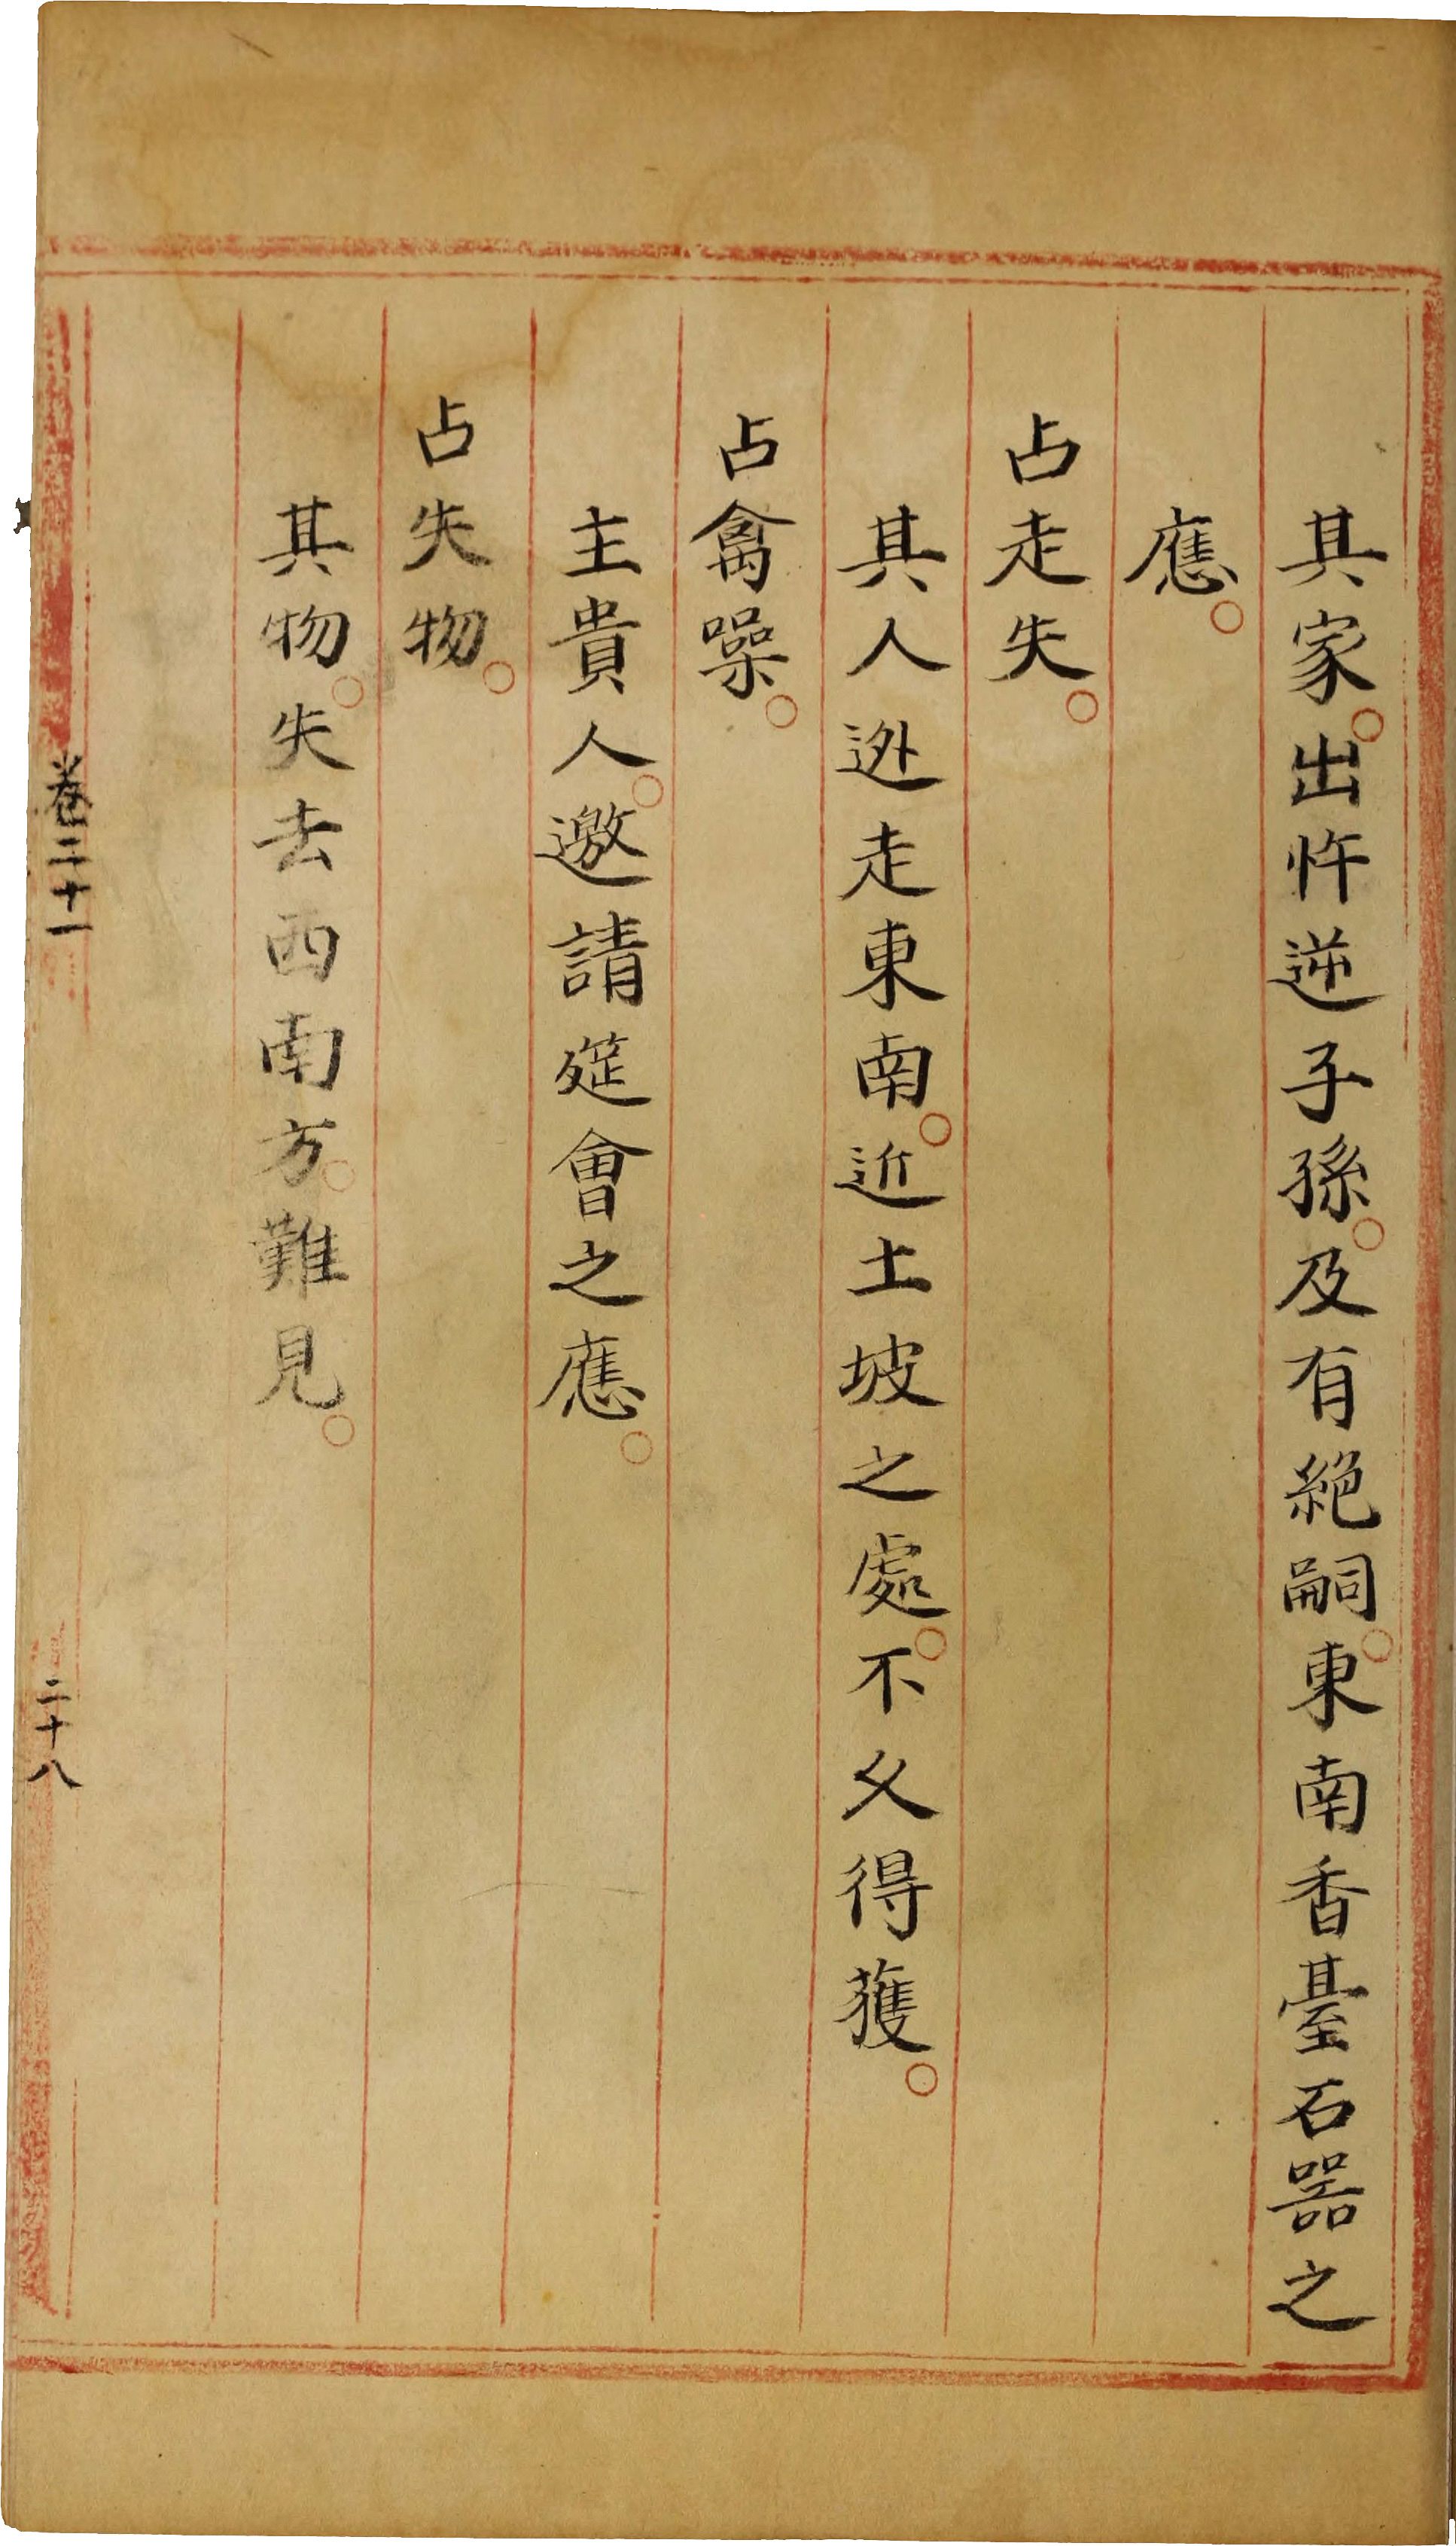 其家。出忤逆子孫。及有絶嗣。東南香臺石器之
應。
占走失。
其人迯走東南。近土坡之處。不久得獲。
占禽噪。
主貴人。邀請筵會之應。
占失物。
其物。失去西南方。難見。
卷二十一
二十八